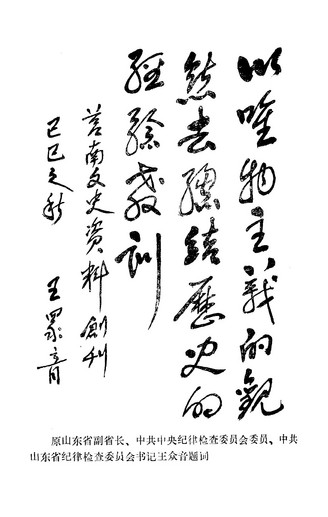 以唯物主義的觀
點去總結歷史的
經驗教訓
莒南文史资料創刊
己巳之秋 王眾音
原山东省副省长、中共中央纪律检查委员会委员、中共
山东省纪律检查委员会书记王众音题词